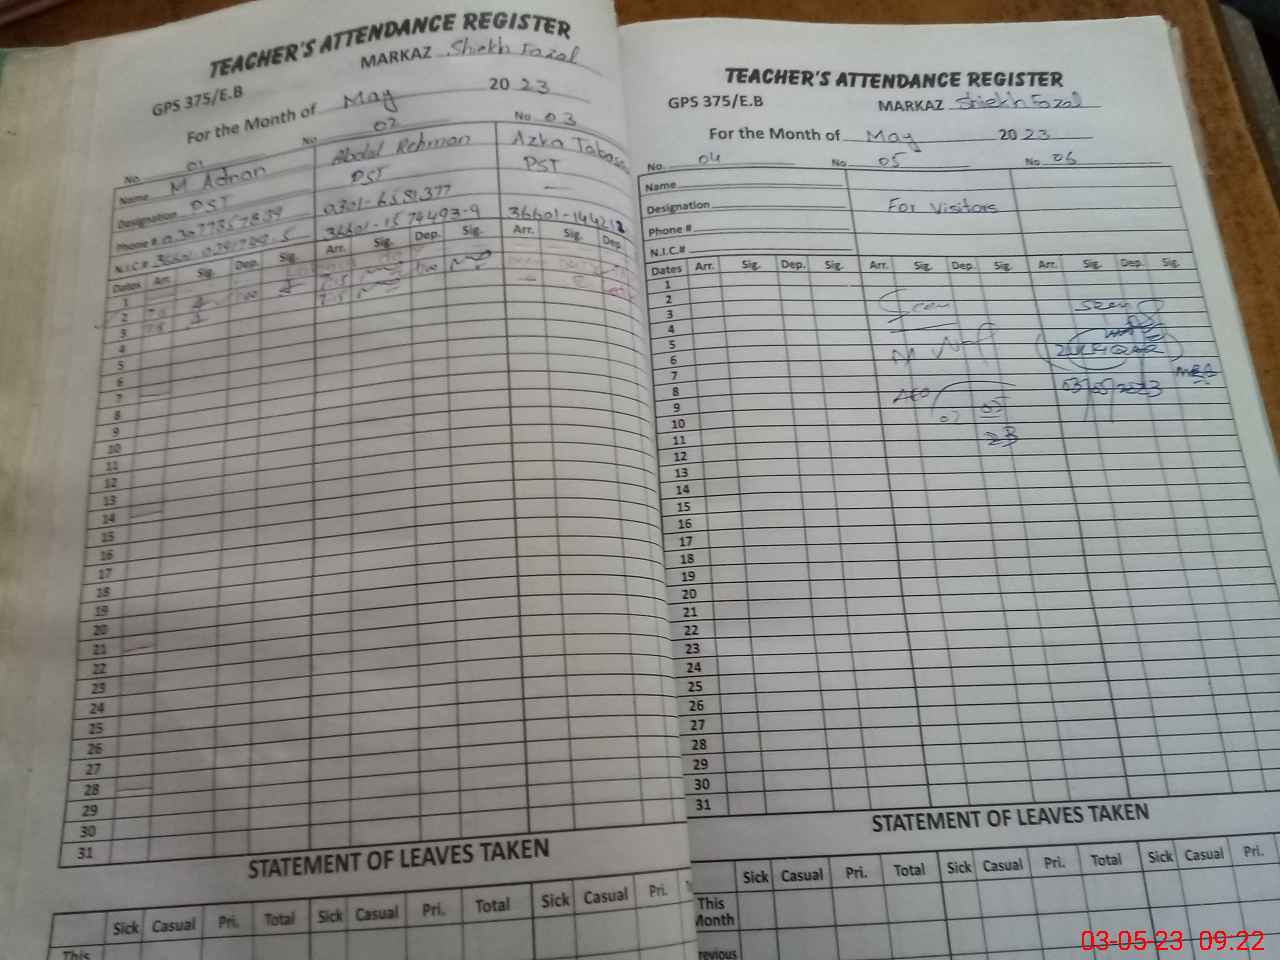 TEACHER'S ATTENDANCE REGISTER
GPS 375/E.B MARKAZ Shiekh Fazal
For the Month of May 2023
No 01 No 02 No 03
Name M Adnan Abdul Rehman Azka
Designation PST PST PST
Phone # 0301-6581377 —
N.I.C.# 36601-1574493-9
Dates Arr. Sig. Dep. Sig. Arr. Sig. Dep. Sig. Arr. Sig. Dep.
1
2
3
4
5
6
7
8
9
10
11
12
13
14
15
16
17
18
19
20
21
22
23
24
25
26
27
28
29
30
31
STATEMENT OF LEAVES TAKEN
Sick Casual Pri. Total Sick Casual Pri. Total Sick Casual Pri.
This
TEACHER'S ATTENDANCE REGISTER
GPS 375/E.B MARKAZ Shiekh Fazal
For the Month of May 2023
No. 04 No 05 No 06
Name
Designation For Visitors
Phone #
N.I.C.#
Dates Arr. Sig. Dep. Sig. Arr. Sig. Dep. Sig. Arr. Sig. Dep. Sig.
1
2
3
4
5
6
7
8 03/05/2023
9
10
11
12
13
14
15
16
17
18
19
20
21
22
23
24
25
26
27
28
29
30
31
STATEMENT OF LEAVES TAKEN
Sick Casual Pri. Total Sick Casual Pri. Total Sick Casual Pri.
This
Month
03-05-23 09:22